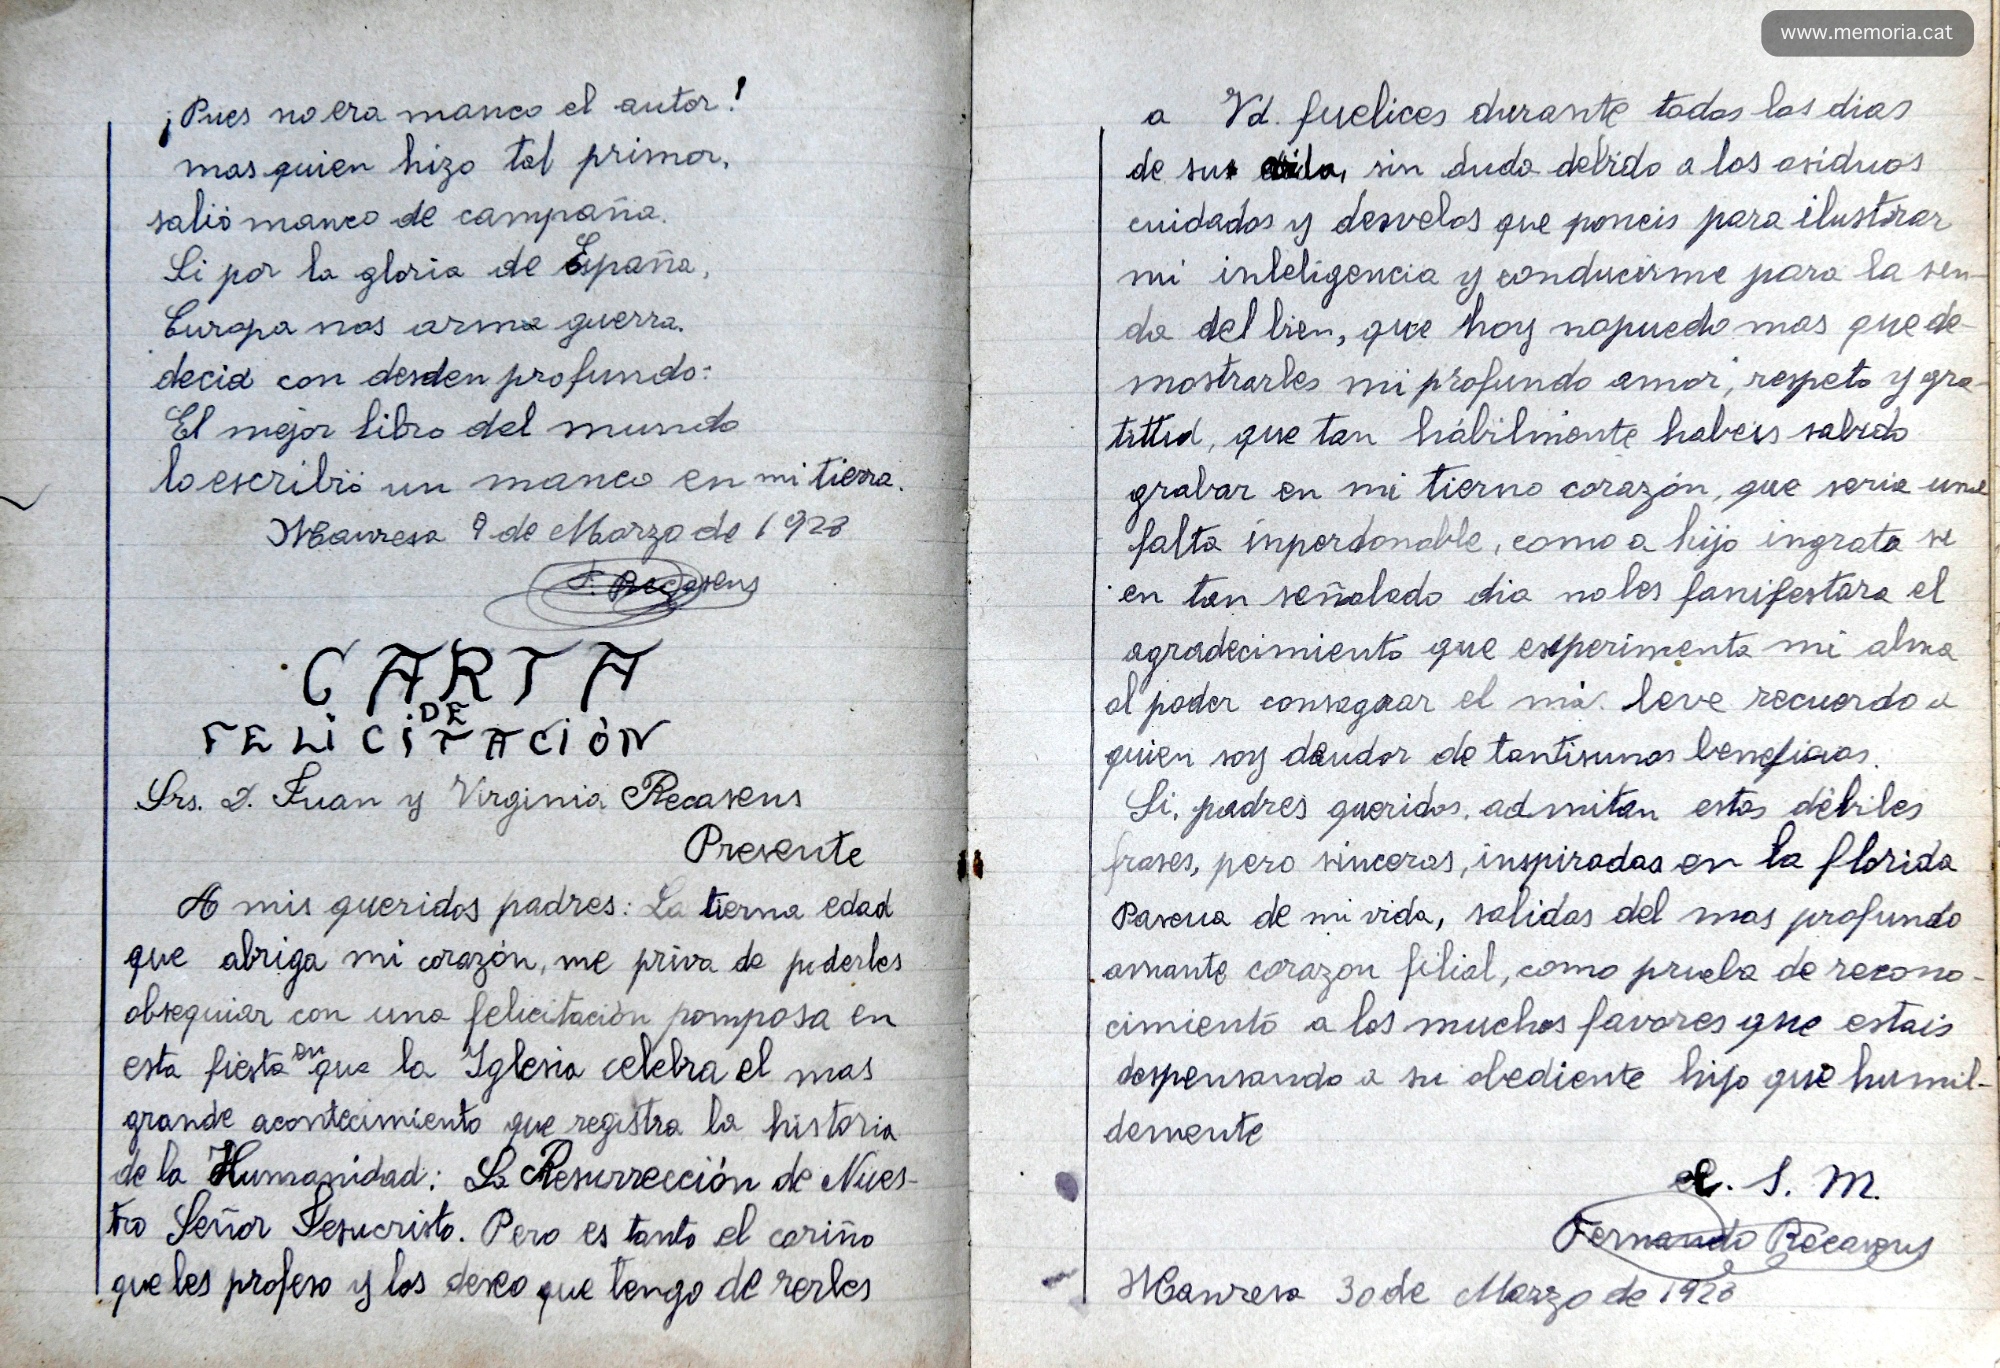 ¡Pues no era manco el autor!
mas quien hizo tal primor,
salió manco de campaña.
Si por la gloria de España,
Europa nos arma guerra.
decid con desden profundo:
El mejor libro del mundo
lo escribió un manco en mi tierra.
Manresa 9 de Marzo de 1928
F. Recasens
CARTA
DE
FELICITACIÓN
Srs. D. Juan y Virginia Recasens
Presente
A mis queridos padres: La tierna edad
que abriga mi corazón, me priva de poderles
obsequiar con una felicitación pomposa en
esta fiesta en que la Iglesia celebra el mas
grande acontecimiento que registra la historia
de la Humanidad: La Resurrección de Nues-
tro Señor Jesucristo. Pero es tanto el cariño
que les profeso y los deseo que tengo de verles
www.memoria.cat
a Vd. fuelices durante todos los dias
de su vida, sin duda debido a los asiduos
cuidados y desvelos que poneis para ilustrar
mi inteligencia y conducirme para la sen-
da del bien, que hoy no puedo mas que de-
mostrarles mi profundo amor, respeto y gra-
titud, que tan hábilmente habeis sabido
grabar en mi tierno corazón, que seria una
falta inperdonable, como a hijo ingrato si
en tan señalado dia no les fanifestara el
agradecimiento que esperimenta mi alma
al poder consagrar el mas leve recuerdo a
quien soy deudor de tantisimos beneficios.
Si, padres queridos, admitan estas débiles
frases, pero sinceras, inspiradas en la florida
Pascua de mi vida, salidas del mas profundo
amante corazon filial, como prueba de recono-
cimiento a los muchos favores que estais
despensando a su obediente hijo que humil-
demente
S. M.
Fernando Recasens
Manresa 30 de Marzo de 1928